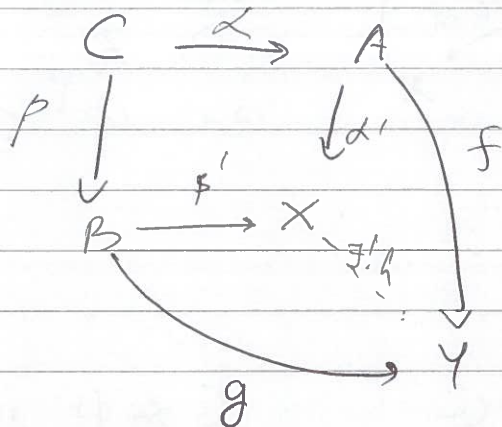 C α A
β α' f
B β' X
∃!h
Y
g